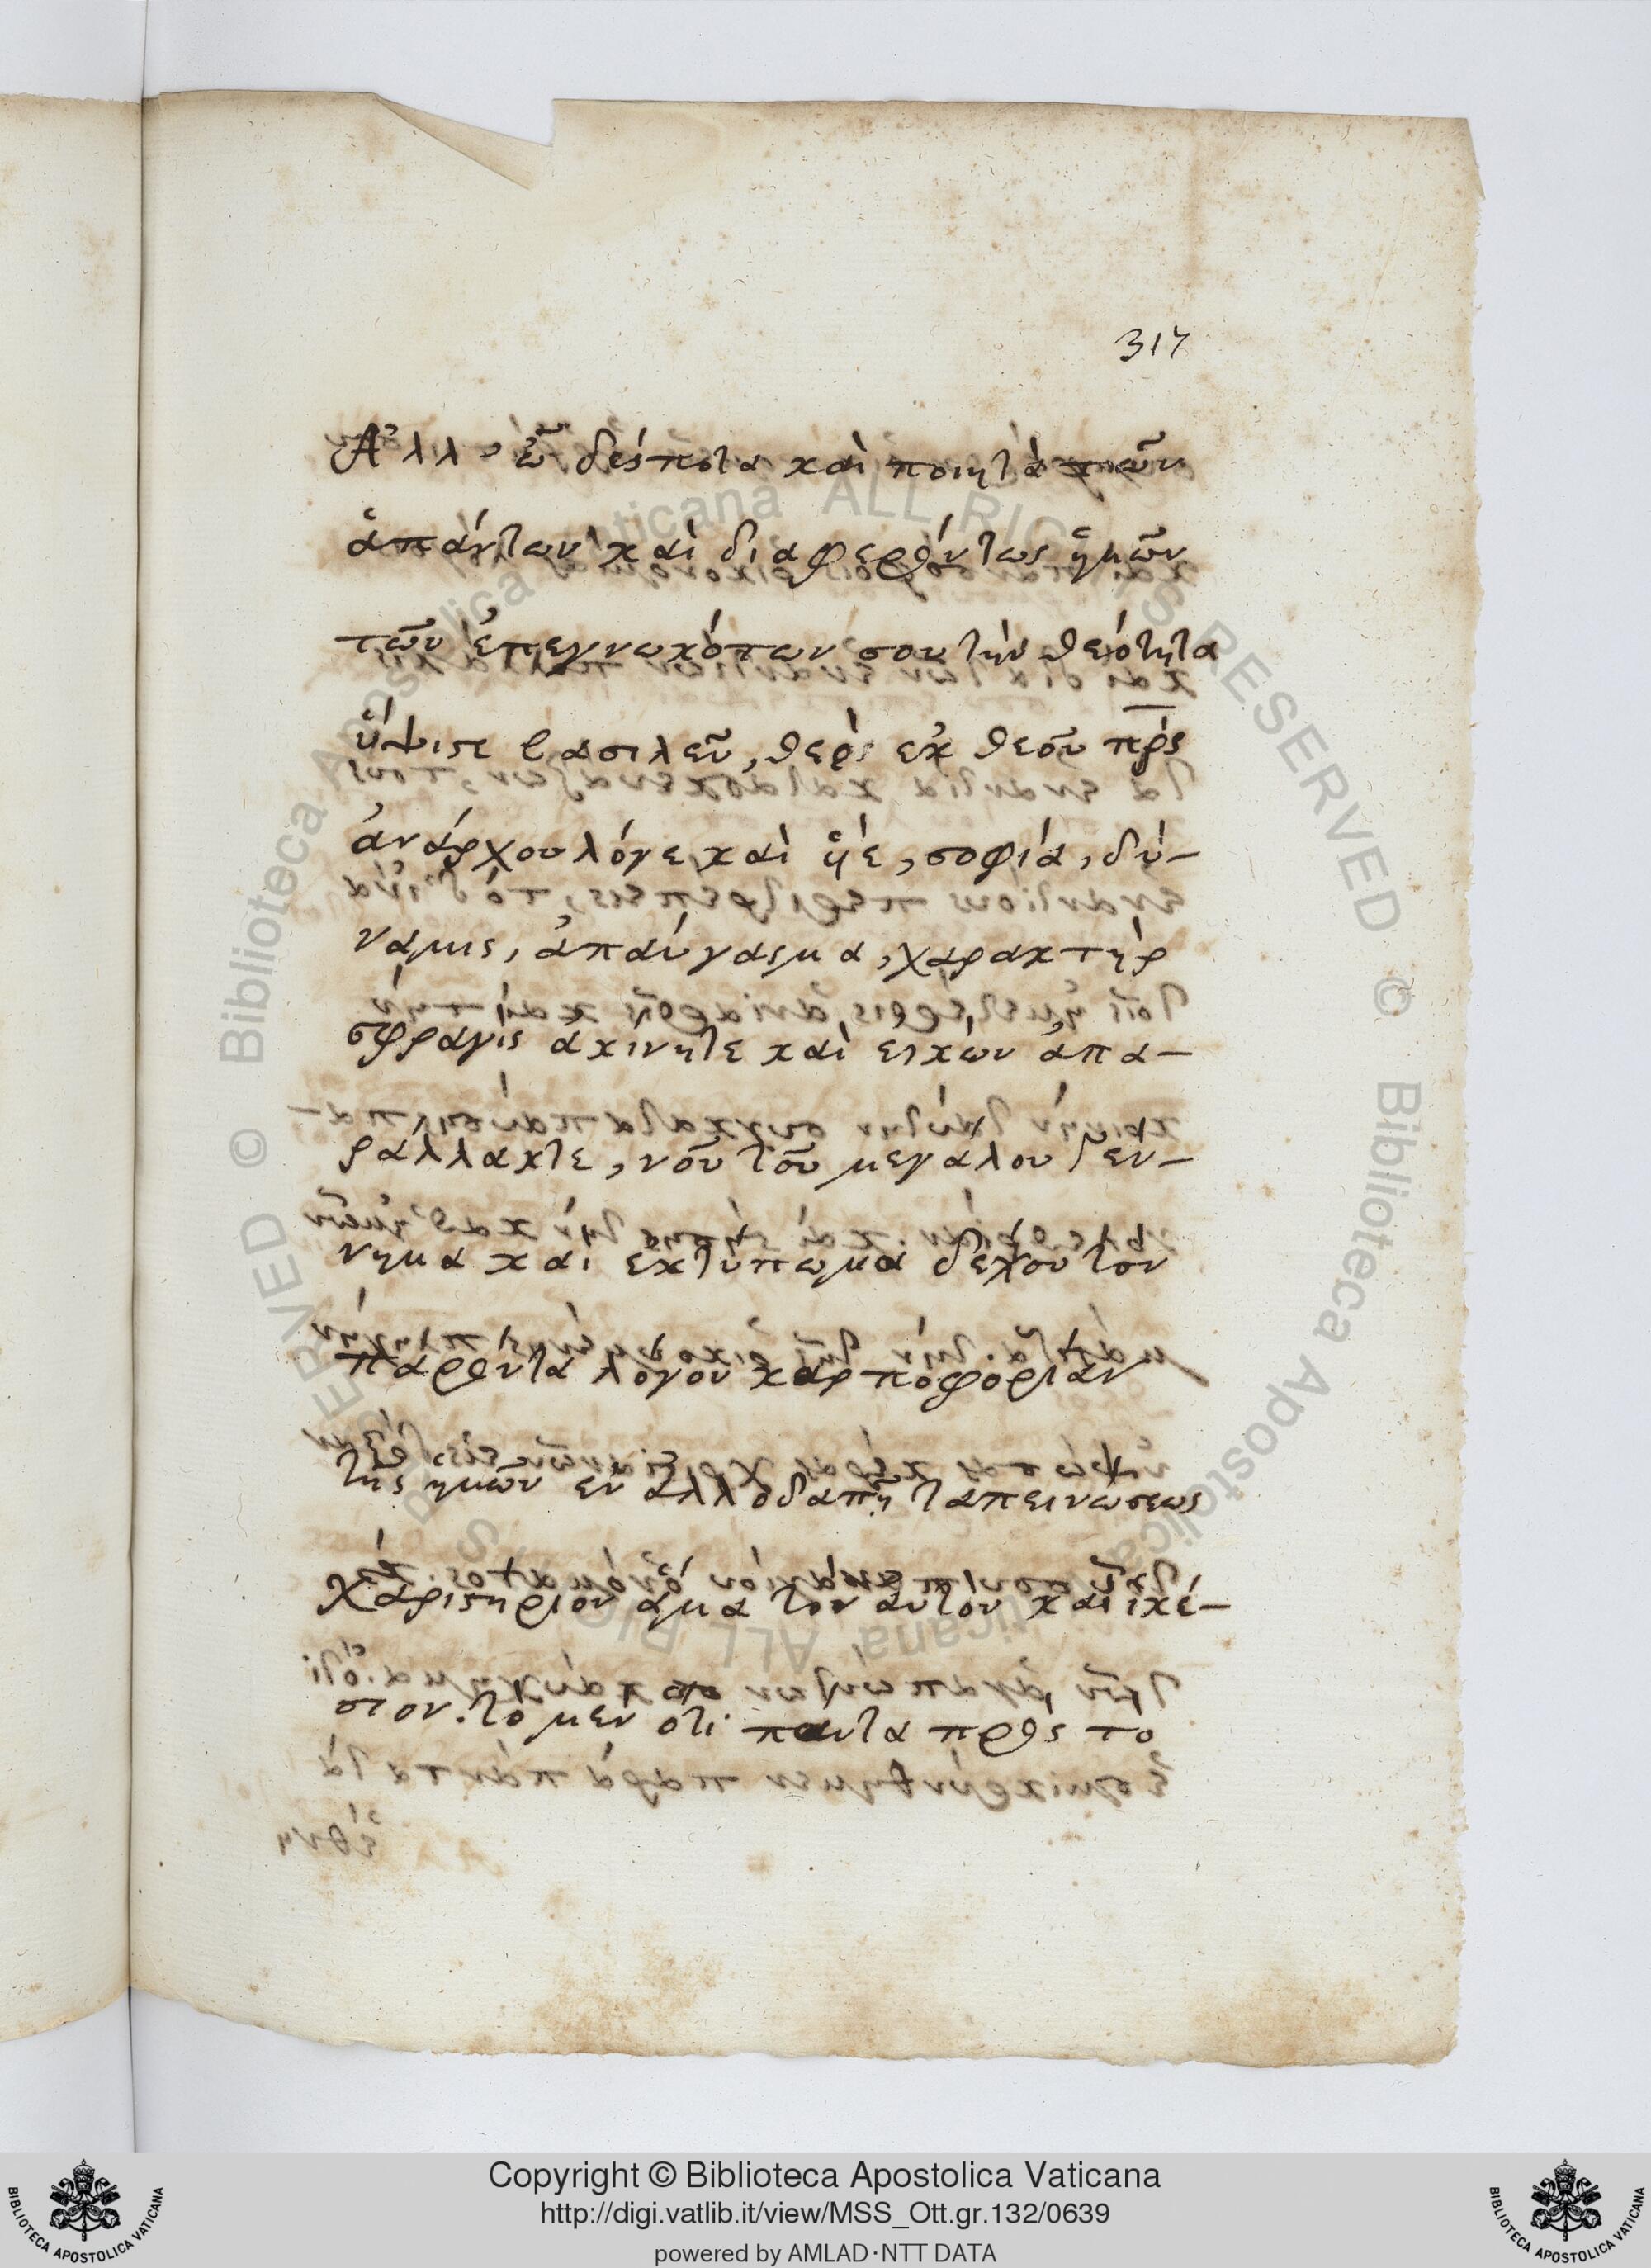 317
Ἀλλ' ὦ δέσποτα καὶ ποιητὰ τῶν
ἁπάντων καὶ διαφερόντως ἡμῶν
τῶν ἐπεγνωκότων σου τὴν θεότητα
ὕψιστε βασιλεῦ, θεὸς ἐκ θεοῦ π̅ρ̅ς̅
ἀνάρχου λόγε καὶ ὑιέ, σοφία, δύ-
ναμις, ἀπαύγασμα, χαρακτὴρ
σφραγὶς ἀκίνητε καὶ εἰκὼν ἀπα-
ράλλακτε, νοῦ τοῦ μεγάλου γεν-
νημα καὶ ἐκτύπωμα δέχου τον
παρόντα λόγον καρποφορίαν
τῆς ἡμῶν ἐν ἀλλοδαπῇ ταπεινώσεως
χαριστήριον ἅμα τον αὐτὸν καὶ ἱκέ-
σιον. το μὲν ὅτι πάντα πρὸς το
Copyright © Biblioteca Apostolica Vaticana
http://digi.vatlib.it/view/MSS_Ott.gr.132/0639
powered by AMLAD·NTT DATA
BIBLIOTECA APOSTOLICA VATICANA
BIBLIOTECA APOSTOLICA VATICANA